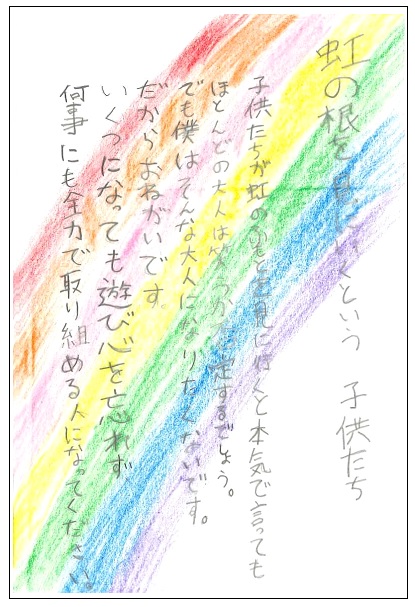 虹の根を見にいくという 子供たち
子供たちが虹のふもとを見に行くと本気で言っても
ほとんどの大人は笑うか否定するでしょう。
でも僕はそんな大人になりたくないです。
だからおねがいです。
いくつになっても遊び心を忘れず
何事にも全力で取り組める人になってください。